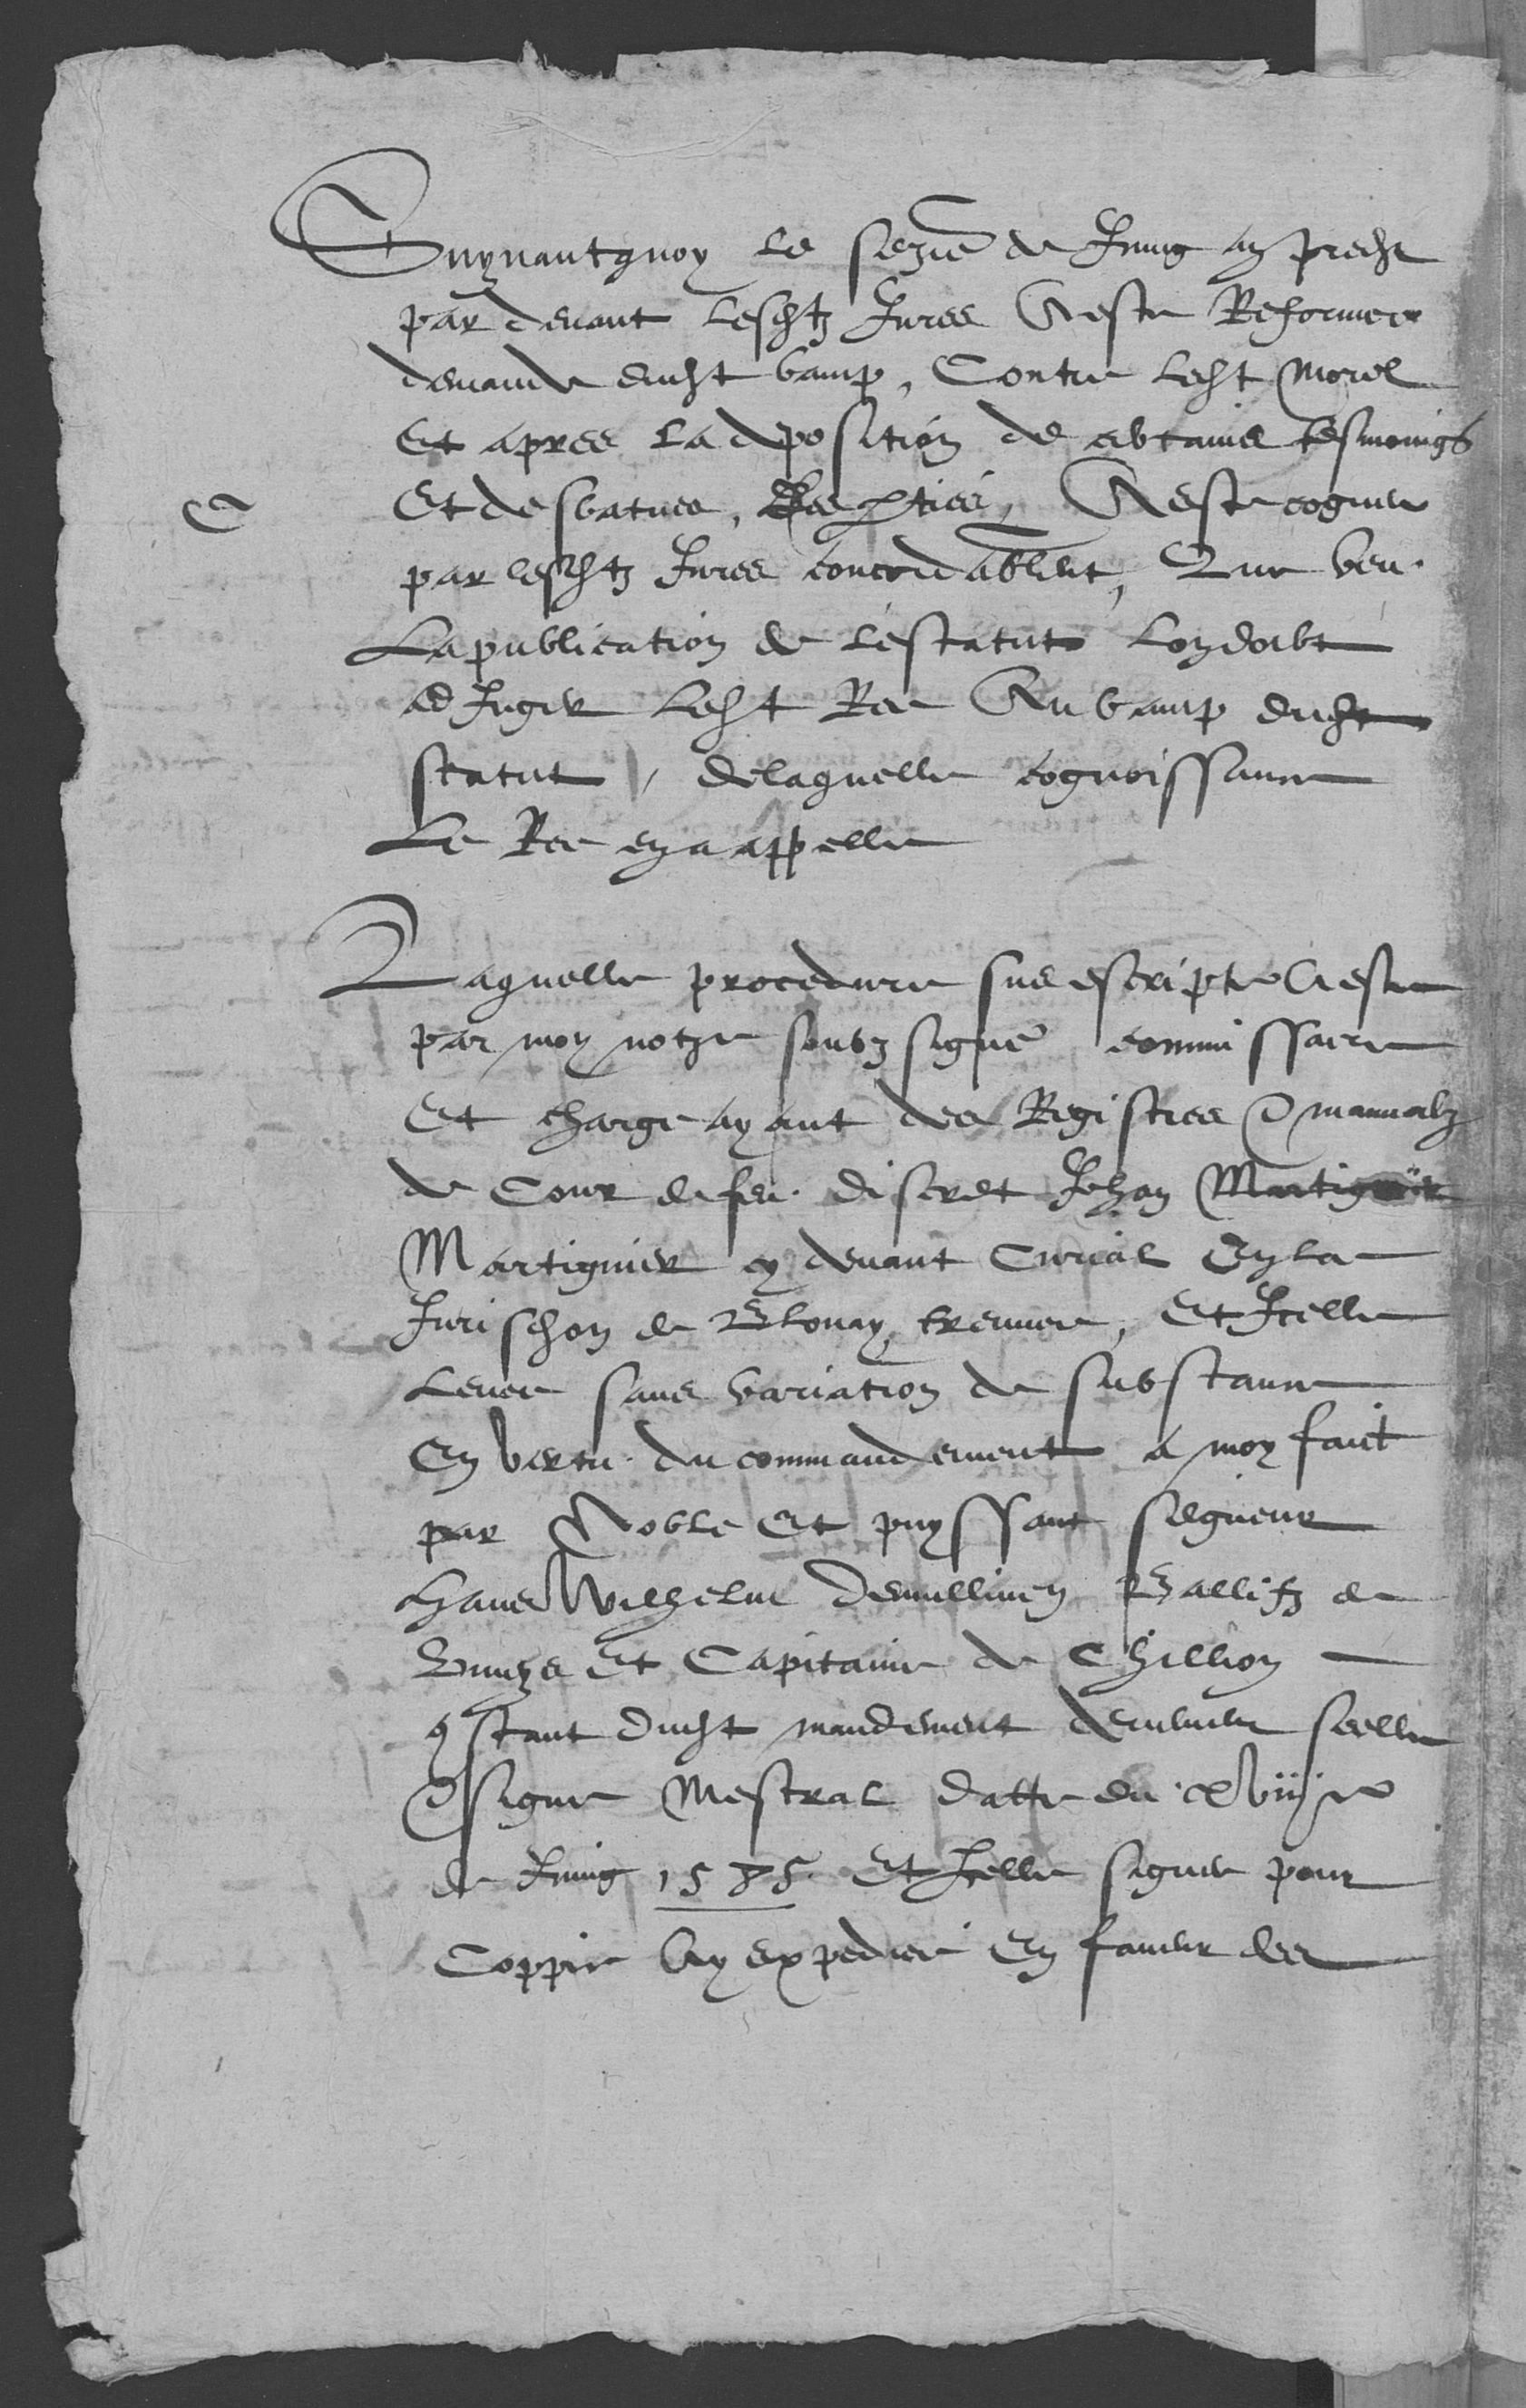 Suyvantquoy le sezie de Juing an predit
par devant lesditz Jures A este Reformee
demande dudit bamp, Contre ledit Morel
Et apres la deposition de certains tesmoings
Et desbatues, des parties, A este cogneu
par lesditz Jures concordablemt, Que veu
La publication de lestatut Lon doibt
adjuger ledit Ree Au bamp dudit
statut, de laquelle cognoissance
Le Ree en a appelle
Laquelle procedure sus escripte A este
par moy notre soubzsigne commissaire
Et charge ayant des Registres & manualz
de Cour de feu discret Jehan
Martignier cy devant Curial En la
Jurisdion de Blonay treuvee, Et Icelle
Levee sans variation de substance
En vertu du commandement a moy faict
par Noble Et puyssant seigneur
Hans Wilhelm Demullinen Ballifz de
Et Capitaine de Chillion
constant dudit mandement seelle
& signe Mestral datte du xviije
de Juing 1585. Et Icelle signee pour
Coppie Ay expediee En faveur des